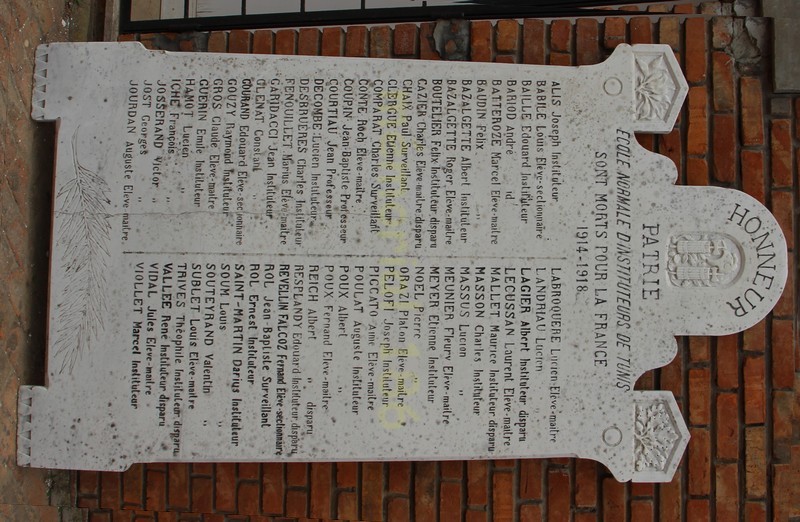 HONNEUR
PATRIE
ECOLE NORMALE D'INSTITUTEURS DE TUNIS
SONT MORTS POUR LA FRANCE
1914-1918
ALIS Joseph Instituteur
BABILE Louis Elève-sectionnaire
BAILLE Edouard Instituteur
BARIOD André id
BATTEROZE Marcel Elève-maître
BAUDIN Félix "
BAZALGETTE Albert Instituteur
BAZALGETTE Roger Elève-maître
BOUTELIER Félix Instituteur disparu
CAZIER Charles Elève-maître disparu
CHAIX Paul Surveillant
CLERGUE Etienne Instituteur
COMPARAT Charles Surveillant
CONTE Roch Elève-maître
COUPIN Jean-Baptiste Professeur
COURTIAU Jean Professeur
DECOMBE Lucien Instituteur
DESBRUERES Charles Instituteur
FENOUILLET Marius Elève-maître
GARDACCI Jean Instituteur
GLENAT Constant "
GOURAND Edouard Elève-sectionnaire
GOUZY Raymond Instituteur
GROS Claude Elève-maître
GUERIN Emile Instituteur
HAMOT Lucien "
ICHÉ François "
JOSSERAND Victor "
JOST Georges "
JOURDAN Auguste Elève-maître
LABROQUERE Lucien Elève-maître
LANDRIAU Lucien "
LAGIER Albert Instituteur disparu
LECUSSAN Laurent Elève-maître
MALLET Maurice Instituteur disparu
MASSON Charles Instituteur
MASSUS Lucien "
MEUNIER Fleury Elève-maître
MEYER Etienne Instituteur
NOEL Pierre "
ORAZI Platon Elève-maître
PELOFI Joseph Instituteur
PIGGATO Aimé Elève-maître
POULAT Auguste Instituteur
POUX Albert "
POUX Fernand Elève-maître
REICH Albert " disparu
RESPLANDY Edouard Instituteur disparu
REVELLIN FALCOZ Fernand Elève-sectionnaire
ROL Jean-Baptiste Surveillant
ROL Ernest Instituteur
SAINT-MARTIN Darius Instituteur
SOUM Louis "
SOUTEYRAND Valentin "
SUBLET Louis Elève-maître
TRIVES Théophile Instituteur disparu
VALLÉE René Instituteur disparu
VIDAL Jules Elève-maître
VIOLLET Marcel Instituteur